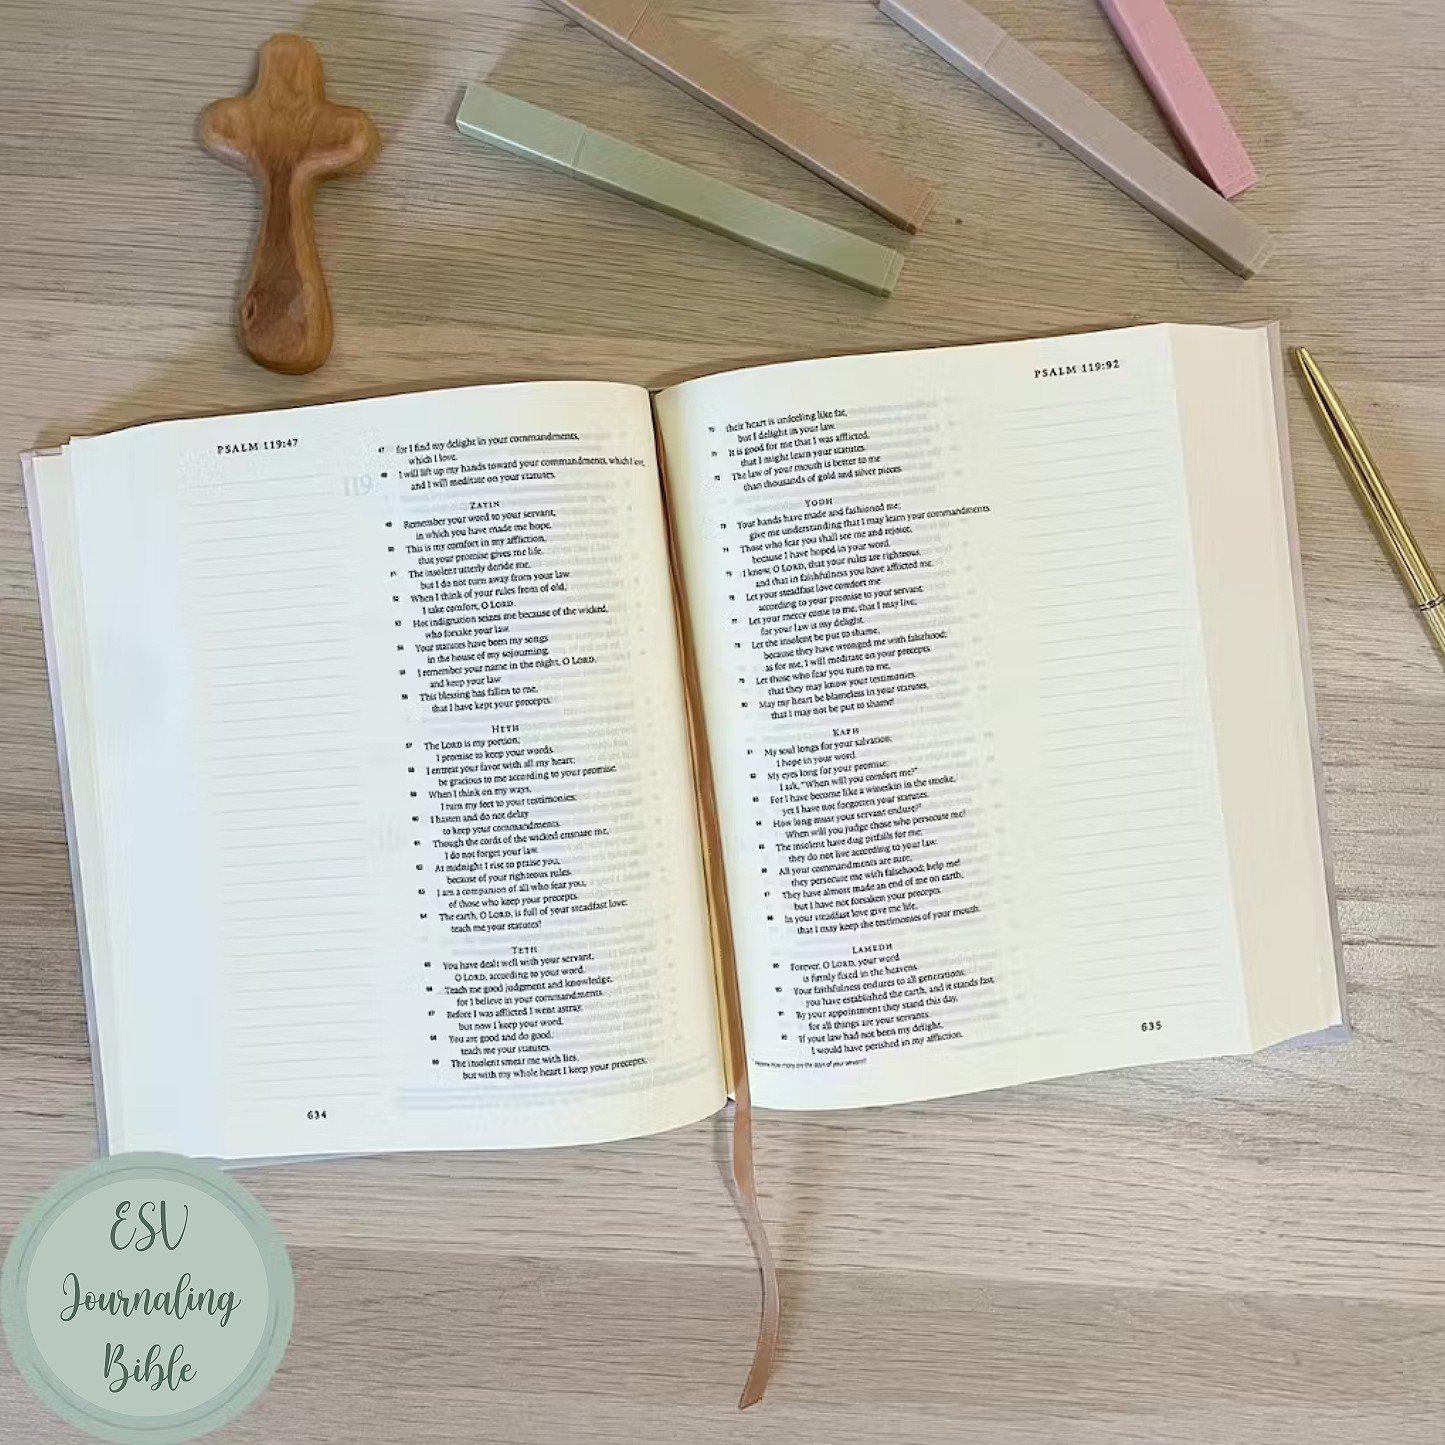 PSALM 119:47
47 for I find my delight in your commandments,
which I love.
48 I will lift up my hands toward your commandments, which I love,
and I will meditate on your statutes.
ZAYIN
49 Remember your word to your servant,
in which you have made me hope.
50 This is my comfort in my affliction,
that your promise gives me life.
51 The insolent utterly deride me,
but I do not turn away from your law.
52 When I think of your rules from of old,
I take comfort, O LORD.
53 Hot indignation seizes me because of the wicked,
who forsake your law.
54 Your statutes have been my songs
in the house of my sojourning.
55 I remember your name in the night, O LORD,
and keep your law.
56 This blessing has fallen to me,
that I have kept your precepts.
HETH
57 The LORD is my portion;
I promise to keep your words.
58 I entreat your favor with all my heart;
be gracious to me according to your promise.
59 When I think on my ways,
I turn my feet to your testimonies;
60 I hasten and do not delay
to keep your commandments.
61 Though the cords of the wicked ensnare me,
I do not forget your law.
62 At midnight I rise to praise you,
because of your righteous rules.
63 I am a companion of all who fear you,
of those who keep your precepts.
64 The earth, O LORD, is full of your steadfast love;
teach me your statutes!
TETH
65 You have dealt well with your servant,
O LORD, according to your word.
66 Teach me good judgment and knowledge,
for I believe in your commandments.
67 Before I was afflicted I went astray,
but now I keep your word.
68 You are good and do good;
teach me your statutes.
69 The insolent smear me with lies,
but with my whole heart I keep your precepts;
634
PSALM 119:92
70 their heart is unfeeling like fat,
but I delight in your law.
71 It is good for me that I was afflicted,
that I might learn your statutes.
72 The law of your mouth is better to me
than thousands of gold and silver pieces.
YODH
73 Your hands have made and fashioned me;
give me understanding that I may learn your commandments.
74 Those who fear you shall see me and rejoice,
because I have hoped in your word.
75 I know, O LORD, that your rules are righteous,
and that in faithfulness you have afflicted me.
76 Let your steadfast love comfort me
according to your promise to your servant.
77 Let your mercy come to me, that I may live;
for your law is my delight.
78 Let the insolent be put to shame,
because they have wronged me with falsehood;
as for me, I will meditate on your precepts.
79 Let those who fear you turn to me,
that they may know your testimonies.
80 May my heart be blameless in your statutes,
that I may not be put to shame!
KAPH
81 My soul longs for your salvation;
I hope in your word.
82 My eyes long for your promise;
I ask, "When will you comfort me?"
83 For I have become like a wineskin in the smoke,
yet I have not forgotten your statutes.
84 How long must your servant endure?
When will you judge those who persecute me?
85 The insolent have dug pitfalls for me;
they do not live according to your law.
86 All your commandments are sure;
they persecute me with falsehood; help me!
87 They have almost made an end of me on earth,
but I have not forsaken your precepts.
88 In your steadfast love give me life,
that I may keep the testimonies of your mouth.
LAMEDH
89 Forever, O LORD, your word
is firmly fixed in the heavens.
90 Your faithfulness endures to all generations;
you have established the earth, and it stands fast.
91 By your appointment they stand this day,
for all things are your servants.
92 If your law had not been my delight,
I would have perished in my affliction.
Hebrew How many are the days of your servant?
635
ESV
Journaling
Bible